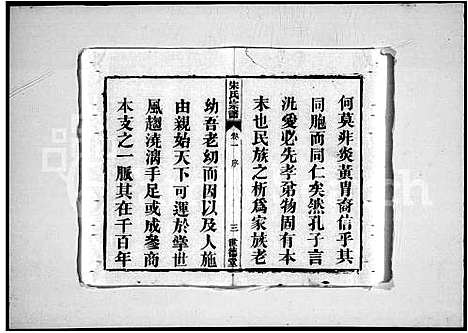 何莫非炎黃胄裔信乎其
同胞而同仁矣然孔子言
汎愛必先孝弟物固有本
末也民族之析爲家族老
朱氏宗譜 卷一 序 三 世德堂
幼吾老幼而因以及人施
由親始天下可運於掌世
風趨澆漓手足或成參商
本支之一脈其在千百年